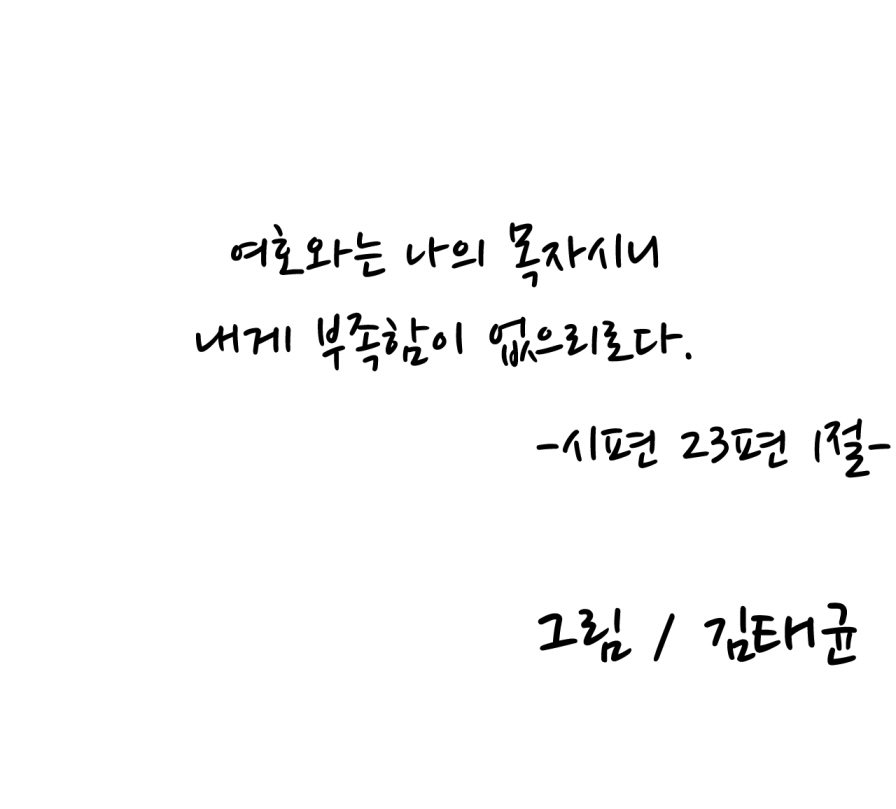 여호와는 나의 목자시니
내게 부족함이 없으리로다.
-시편 23편 1절-
그림 / 김태균